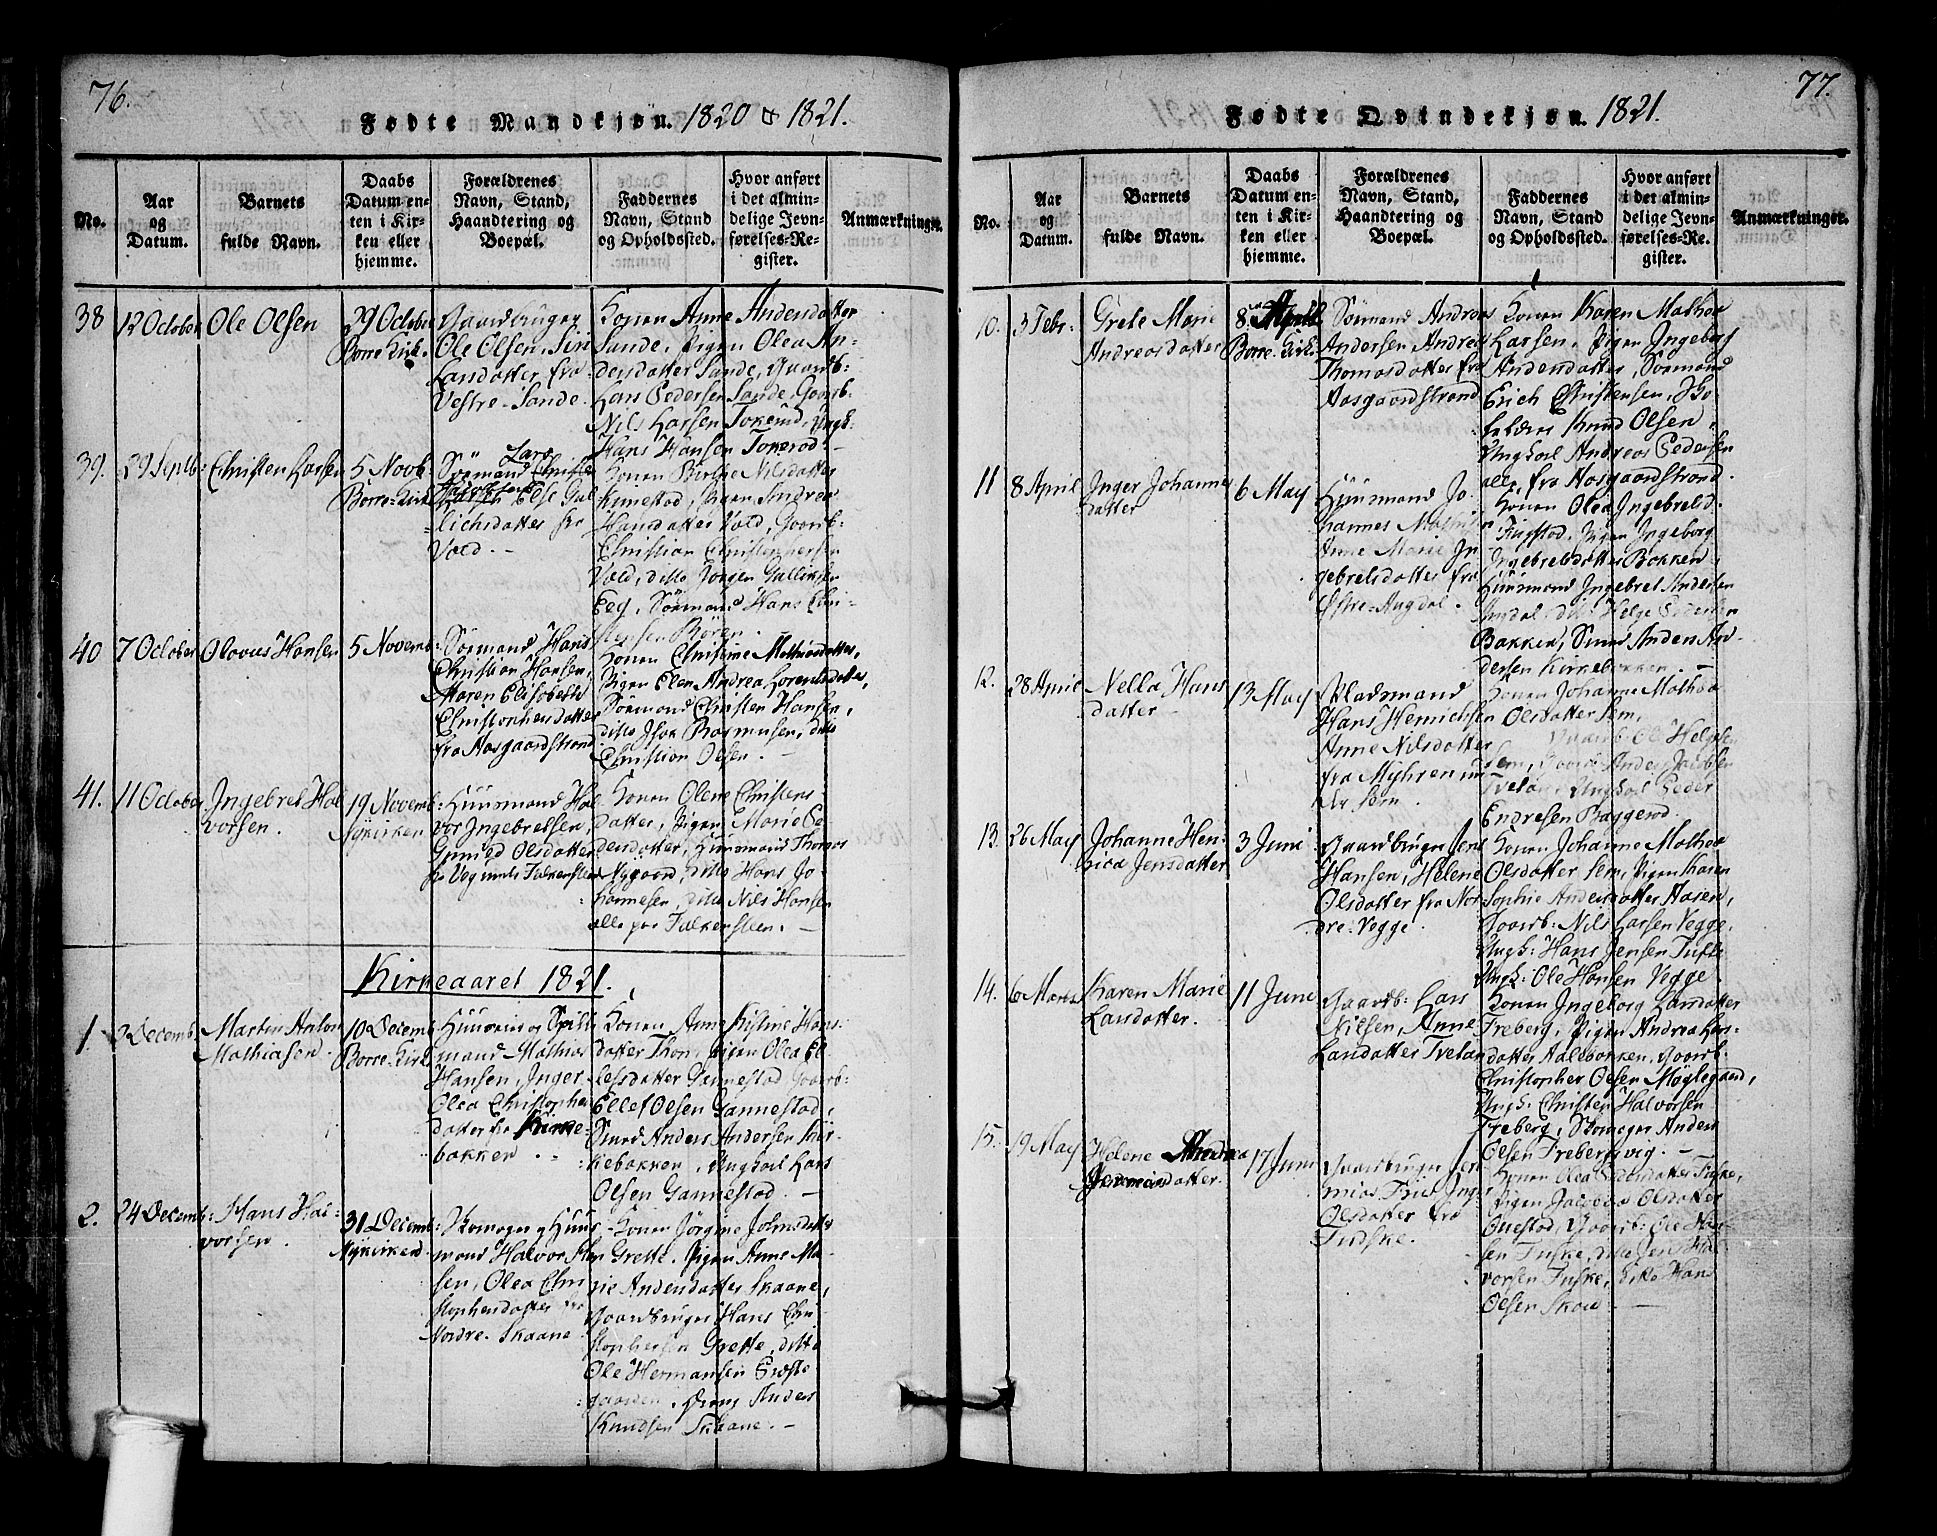 76.
Fødte Mandkjøn. 1820 & 1821.
No.
Aar
og
Datum.
Barnets
fulde Navn.
Daabs
Datum en-
ten i Kir-
ken eller
hjemme.
Forældrenes
Navn, Stand,
Haandtering og
Boepæl.
Faddernes
Navn, Stand
og Opholdssted.
Hvor anført
i det almin-
delige Jevn-
førelses-Re-
gister.
Anmærkninger.
38
12 October
Ole Olsen
29 October
Borre Kirk.
Gaardbruger
Ole Olsen, Siri
Larsdatter fra
Vestre-Sande.
Konen Anne Andersdatter
Sande, Pigen Olea An-
dersdatter Sande, Gaardb:
Lars Pedersen Sande, Gaarb.
Nils Larsen Tokerud, Ungk.
Hans Hansen Tokerød -
39.
29 Septb:
Christen Larsen
5 Novb:
Borre-Kirk
Lars
Sørmand
Else Gul
lichsdatter fra
Vold. -
Konen Birthe Nilsdatter
Kunestad, Pigen Andrea
Hansdatter Vold, Gaarb-
Christian Christophersen
Vold, ditto Jørgen Gullicksen
Eeg, Sørmand Hans Chri-
stensen Børen.
40
7 October
Olavus Hansen
5 Novemb:
Sørmand Hans
Christian Hansen,
Maren Elisabeth
Christophersdatter
fra Aasgaardstrand
Konen Christine Mathiasdatter,
Pigen Elen Andrea Lorentsdatter,
Sørmand Christen Hansen,
ditto Isak Rasmusen, ditto
Christian Olsen. -
41.
11 October
Ingebret Hal
vorsen.
19 Novemb:
Nykirken
Huusmand Hal
vor Ingebretsen,
Gunild Olsdatter
fr Veg under Falkensteen
Konen Olene Christens-
datter, Pigen Marie Pe
dersdatter, Huusmand Thomas
Nygaard, ditto Hans Jo-
hannesen, ditto Nils Hansen
alle paa Falkensteen. -
Kirkeaaret 1821.
1.
3 Decemb.
Marten Anton
Mathiasen
10 Decemb
Borre-Kirk
Huusmand og Spille
mand Mathias
Hansen, Inger
Olea Christophers
datter fra Kirke-
bakken.
Konen Anne Kistine Hans-
datter Thon, Pigen Olea El
lefsdatter Gannestad, Gaarb-
Ellef Olsen Gannestad,
Smed Anders Andersen Kir-
kebakken, Ungkarl Lars
Olsen Gannestad. -
2.
24 Decemb:
Hans Hal-
vorsen
31 Decemb:
Nykirken
Skomager og Huus
mand Halvor
sen, Olea Chri
stophersdatter fra
Nordre-Skaane
Konen Jørgine Johnsdatter
Grette, Pigen Anne Ma-
rie Andersdatter Skaane,
Gaardbruger Hans Chri
stophersen Grette, ditto
Ole Hermansen Præste
gaarden, Dreng Anders
Knudsen Skaane. -
77.
Fødte Qvindekjøn. 1821.
No.
Aar
og
Datum.
Barnets
fulde Navn.
Daabs
Datum en-
ten i Kir-
ken eller
hjemme.
Forældrenes
Navn, Stand,
Haandtering og
Boepæl.
Faddernes
Navn, Stand
og Opholdssted.
Hvor anført
i det almin-
delige Jevn-
førelses-Re-
gister.
Anmærkninger.
10.
3 Febr:
Grete Marie
Andreasdatter
8 April
Borre-Kirk:
Sørmand Andreas
Andersen, Andrea
Thomasdatter fra
Aasgaardstrand
Konen Karen Mathea
Larsen, Pigen Ingeborg
Andersdatter, Sørmand
Erich Christensen,
Knud Olsen
Ungkarl Andreas Pedersen
alle fra Aasgaardstrand.
11
8 April
Inger Johannes
datter
6 May
Huusmand Jo-
hannes Mathis
Anne Marie In
gebretsdatter fra
Østre-Augdal.
Konen Olea Ingebretsd.
Pigen Ingeborg
Ingebretsdatter Bakken,
Huusmand Ingebret Andersen
Augdal, ditto Helge Pedersen
Bakken, Smed Anders An-
dersen Kirkebakken. -
12.
28 April
Nella Hans
datter
13 May
Pladsmand
Hans Henrichsen
Anne Nilsdatter
fra Myhren un-
der Sem.
Konen Johanne Mathea
Olsdatter Sem,
Gaarb: Ole Helgesen
Sem, Gaarb: Anders Jacobsen
Tvetan, Ungkarl Peder
Endresen Baggerød.
13.
26 May
Johanne Hen-
rica Jensdatter
3 Juni
Gaardbruger Jens
Hansen, Helene
Olsdatter fra Nor-
dre-Vegge.
Konen Johanne Mathea
Olsdatter Sem, Pigen Karen
Sophie Andersdatter Aasen,
Gaarb: Nils Larsen Vegge,
Ungk: Hans Jensen Tufte
Ungk: Ole Hansen Vegge
14.
6 Marts
Karen Marie
Larsdatter.
11 Juni
Gaardb: Lars
Nilsen, Anne
Larsdatter Tvetan
Konen Ingeborg Larsdatter
Freberg, Pigen Andrea Lars-
datter Adalsbakken, Gaarb-
Christopher Olsen Møglegaard,
Ungk. Christen Halvorsen
Freberg, Skomager Anders
Olsen Frebergsvig. -
15.
19 May
Helene Andrea
Jeremiasdatter.
17 Juni
Gaardbruger Jere
mias Friis, Inger
Olsdatter fra
Fuske.
Konen Olea Fuske,
Pigen Jacobea Olsdatter
Ottestad, Gaarb: Ole Han-
sen Fuske, ditto Jens Hal
vorsen Fuske, ditto Hans
Olsen Skau -